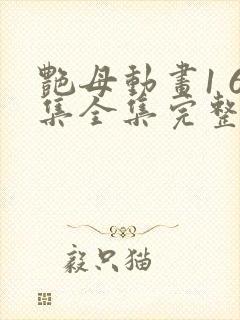 艷母動畫1 6
集全集完整
毅只猫